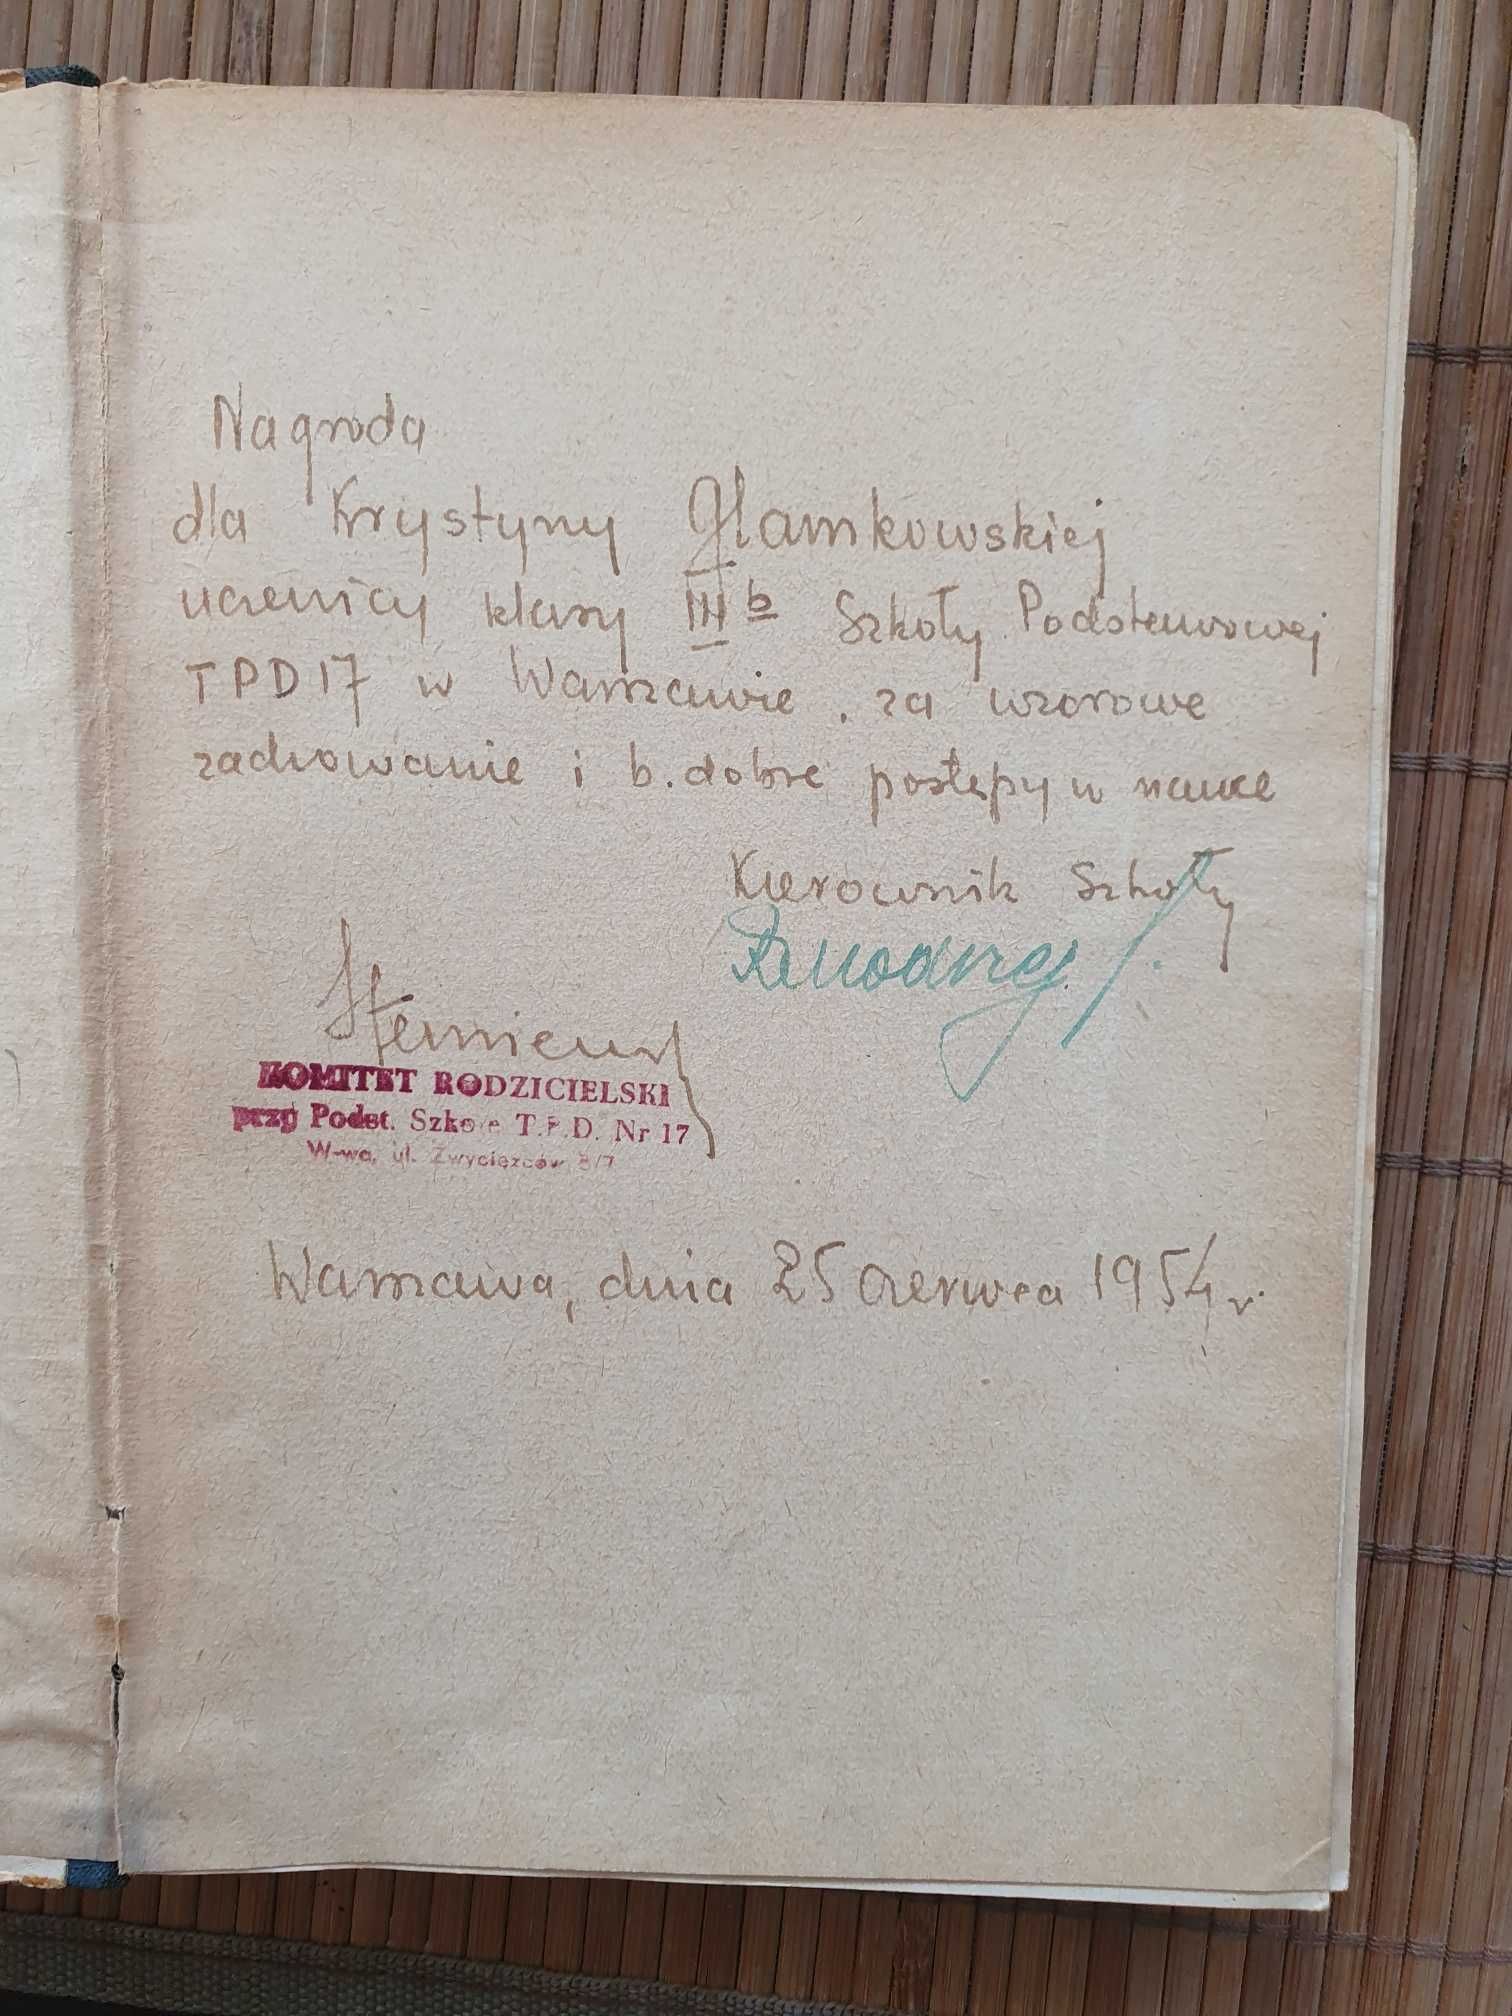 Nagroda
dla Krystyny Glamkowskiej
uczenicy klasy III b Szkoły Podstawowej
TPD 17 w Warszawie. za wzorowe
zachowanie i b. dobre postępy w nauce
Kierownik Szkoły
KOMITET RODZICIELSKI
przy Podst. Szkole T.P.D. Nr 17
W-wa, ul. Zwycięzców
Warszawa, dnia 25 czerwca 1954 r.